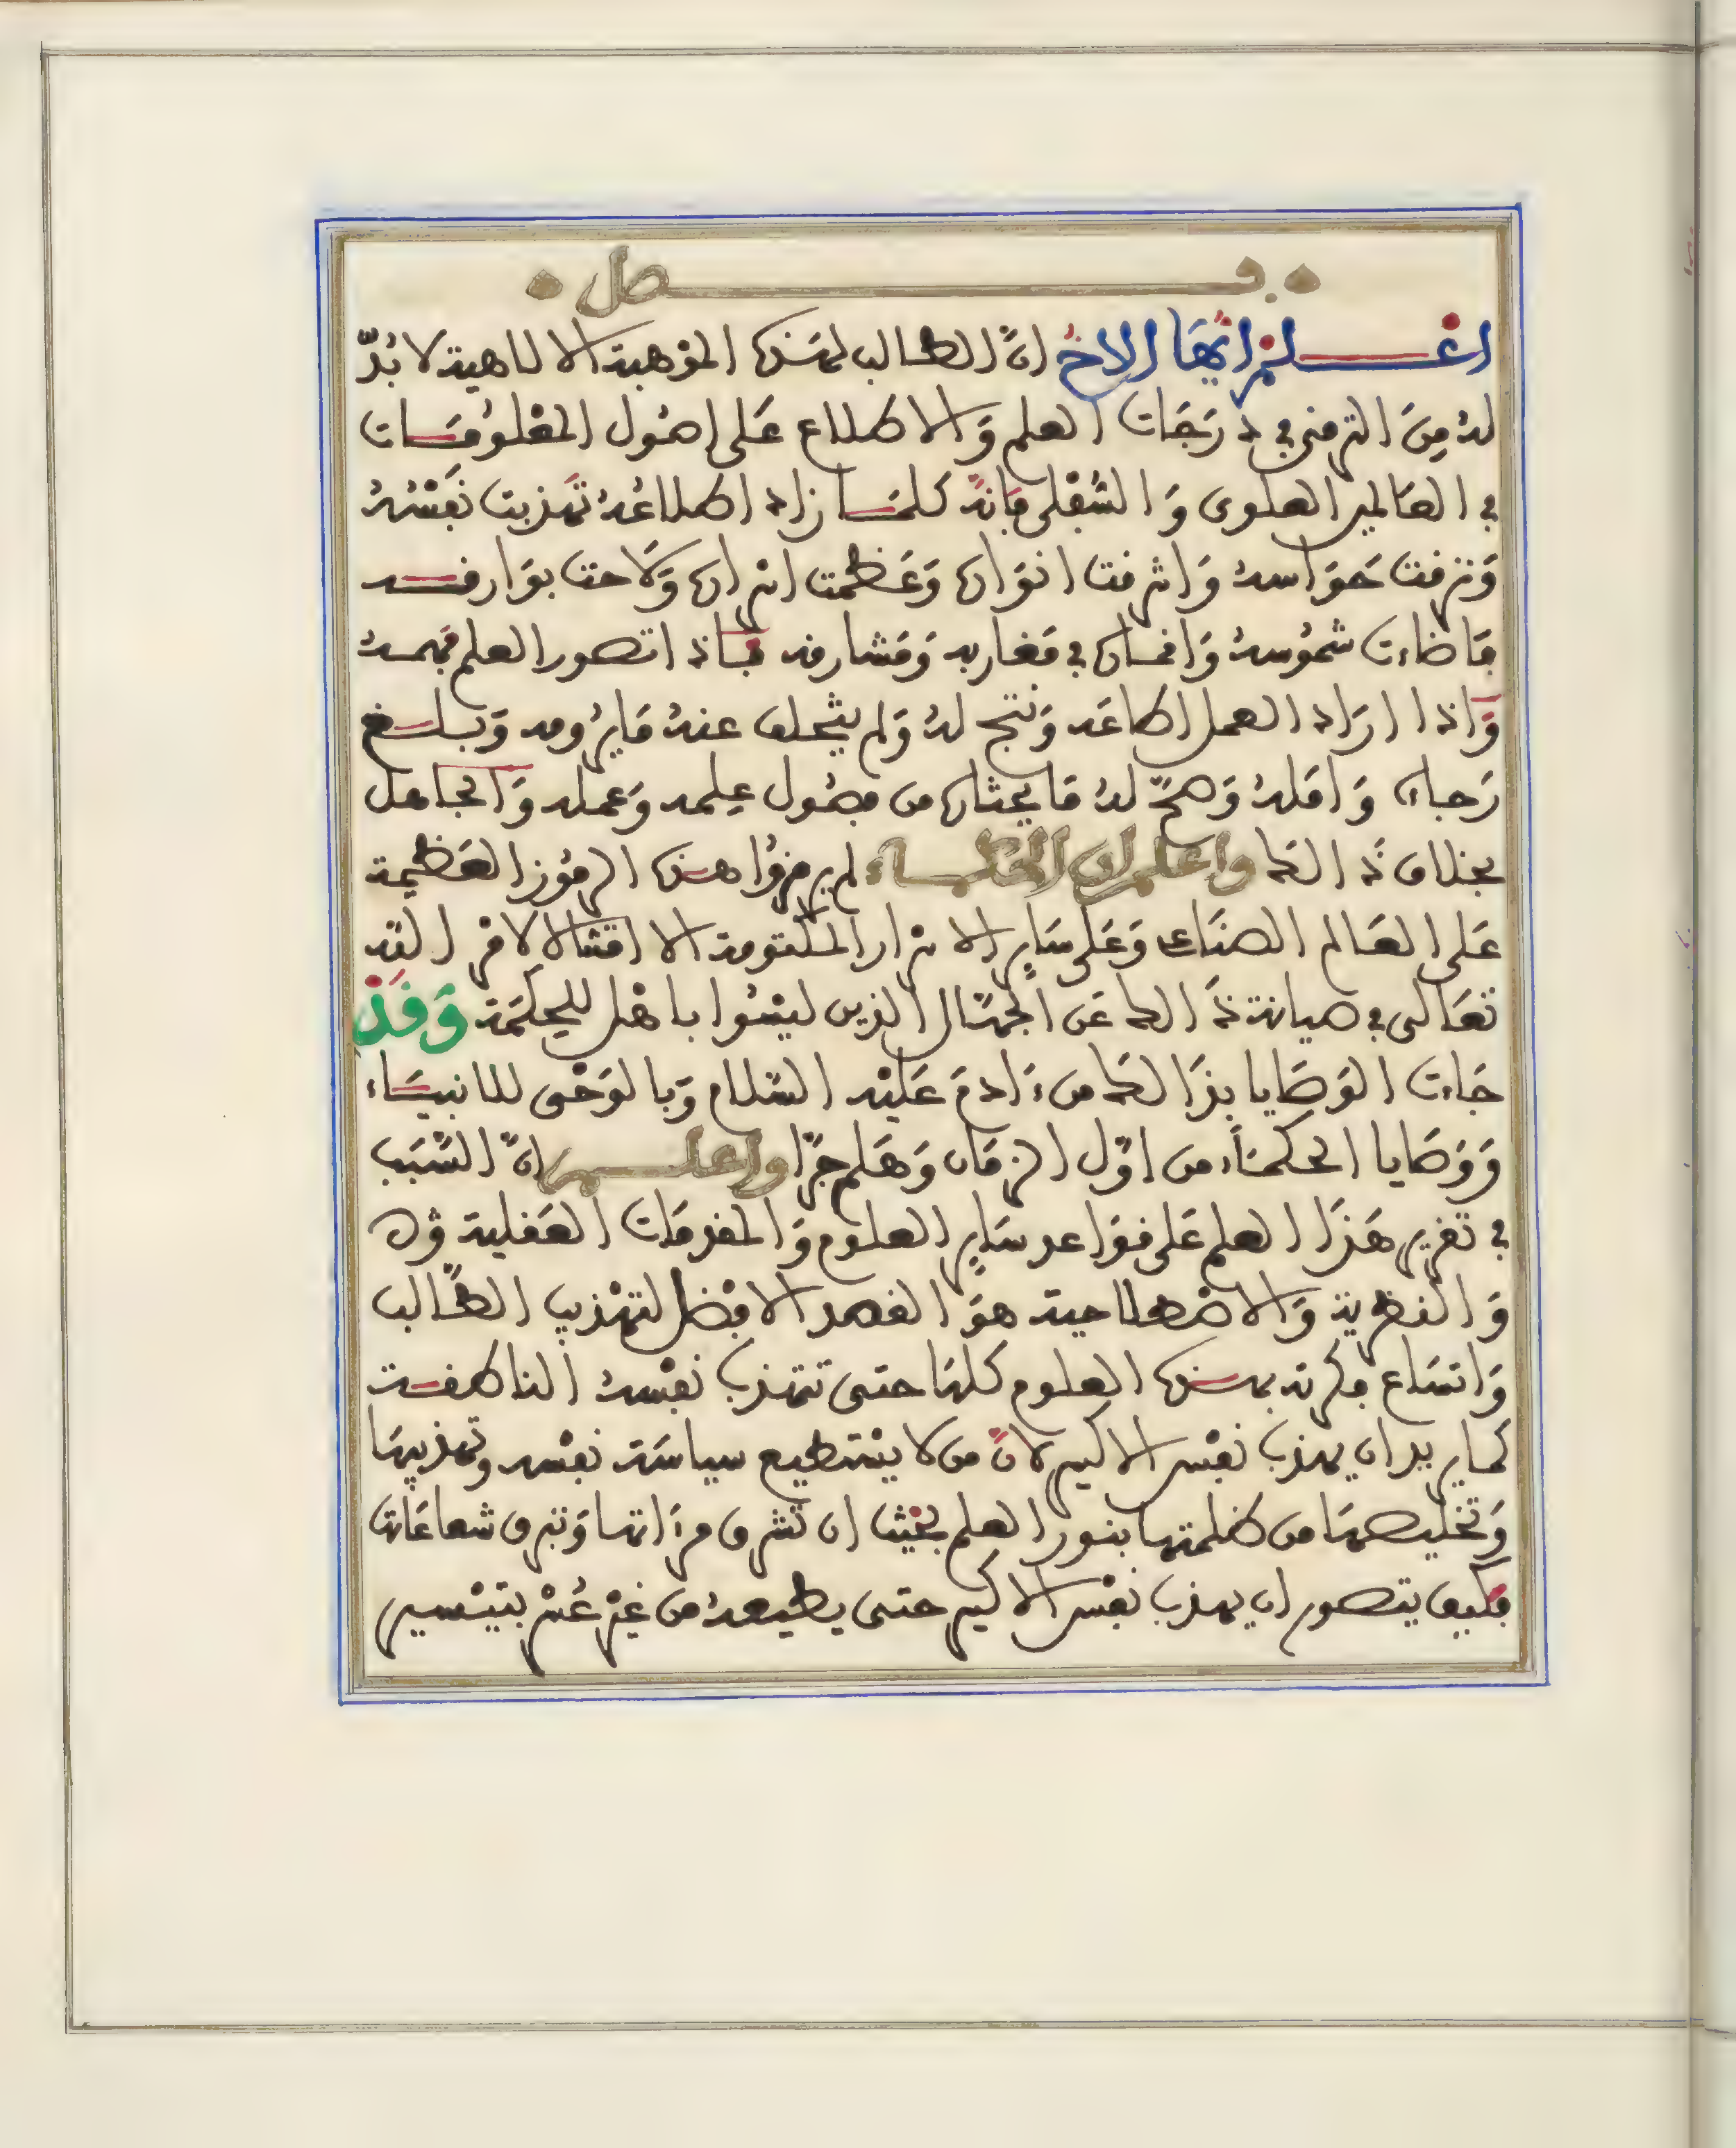 فصل
اعلم ايها الاخ ان الطالب لهذه الموهبة الالاهية لا بد
له من الترقي في درجات العلم والاطلاع على اصول المعلومات
في العالمين العلوي والسفلي فانه كلما زاد اطلاعه تهذبت نفسه
وترقت حواسه واشرقت انواره وعظمت اسراره ولاحت بوارقه
فاضاءت شموسه واقماره في مغاربه ومشارقه فاذا تصور العلم فهمه
واذا اراد العمل اطاعه ونتج له ولم يتخلف عنه ما يرومه وبلغ
رجاءه وامله وصح له ما يختاره من فصول علمه وعمله والجاهل
بخلاف ذالك واعلم ان الحكماء لم يرمزوا هذه الرموز العظيمة
على العالم الصناعي وعلى ساير الاسرار المكتومة الا امتثالا لامر الله
تعالى في صيانة ذالك عن الجهال الذين ليسوا باهل للحكمة وقد
جاءت الوصايا بذالك من ءادم عليه السلام وبالوحي للانبياء
ووصايا الحكماء من اول الزمان وهلم جرا واعلم ان السبب
في تقرير هذا العلم على قواعد ساير العلوم والمقدمات العقلية
والنظرية والاصطلاحية هو القصد الافضل لتهذيب الطالب
واتساع فكرته بهذه العلوم كلها حتى تتهذب نفسه الناطقة
كما يريد ان يهذب نفس الاكسير لان من لا يستطيع سياسة نفسه وتهذيبها
وتخليصها من ظلمتها بنور العلم بحيث ان تشرق مرءاتها وتبرق شعاعاتها
فكيف يتصور ان يهذب نفس الاكسير حتى يطيعه من غير عسر بتيسير